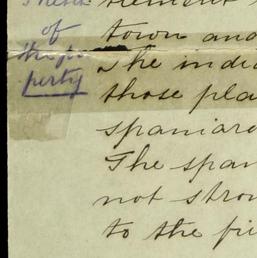 of
town and
the
The india
perty
those pla
spaniard
The span
not stron
to the fri